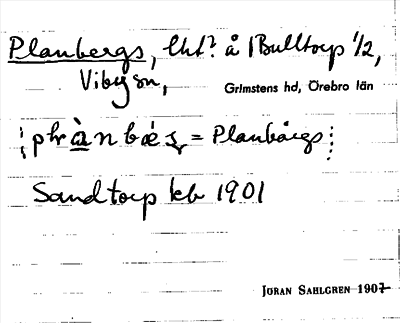 Planbergs, lht? å 1 Bulltorp 1/2,
Viby sn,
Grimstens hd, Örebro län
= Planbärgs
Sandtorp kb 1901
JÖRAN SAHLGREN 1907